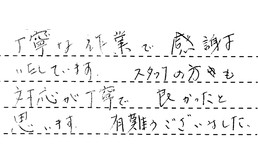 丁寧な作業で感謝は
いたしています。 スタッフの方々も
対応が丁寧で 良かったと
思います。 有難うございました。